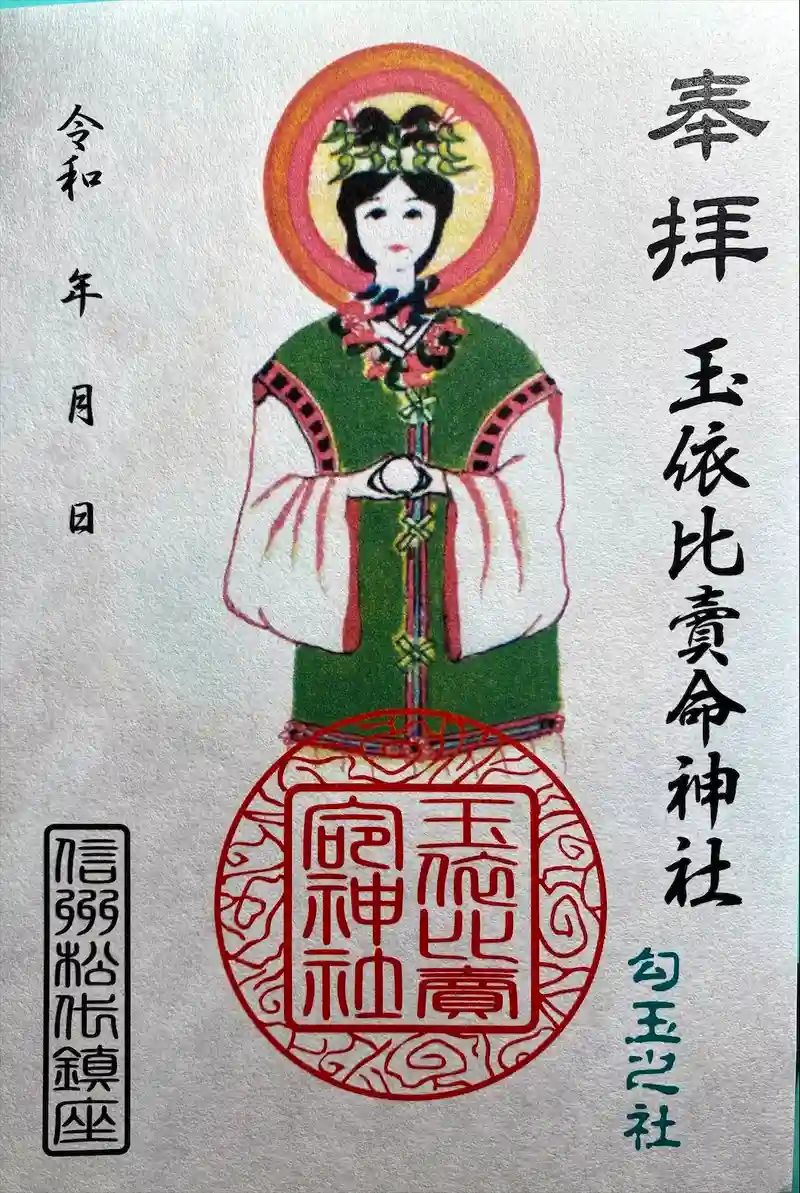 奉拝
玉依比賣命神社
勾玉之社
玉依比賣
命神社
令和 年 月 日
信州松代鎮座